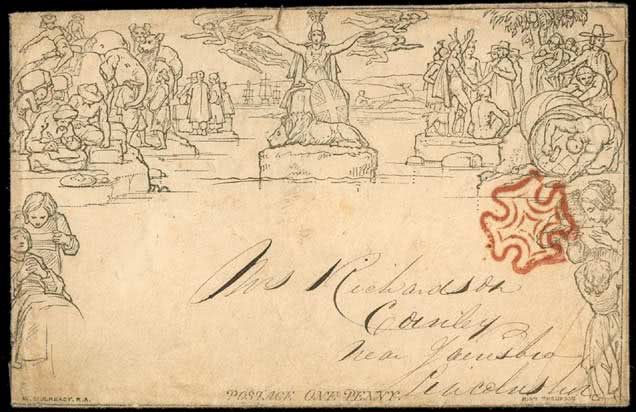 Mrs Richardson
near Gainsbro
Lincolnshire
W. MULREADY. R.A.
POSTAGE ONE PENNY.
JOHN THOMPSON